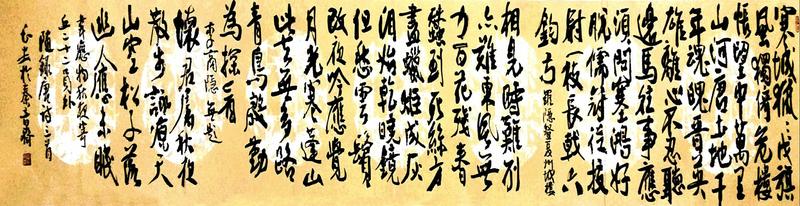 寒城猎猎戍旗
風獨倚危樓
悵望中萬里
山河唐土地千
年魂魄晋英
雄離心不忍聽
邊馬往事應
須問塞鴻好
脱儒冠從校
尉一枝長戟六
鈞弓 羅隱登夏州城樓
相見時難别
亦難東風無
力百花残春
蠶到死絲方
盡蠟炬成灰
泪始乾曉鏡
但愁雲鬢
改夜吟應覺
月光寒蓬山
此去無多路
青鳥殷勤
為探看
李商隱無題
懷君屬秋夜
散步詠凉天
山空松子落
幽人應未眠
韋應物秋夜寄
丘二十二員外
隨録唐詩三首